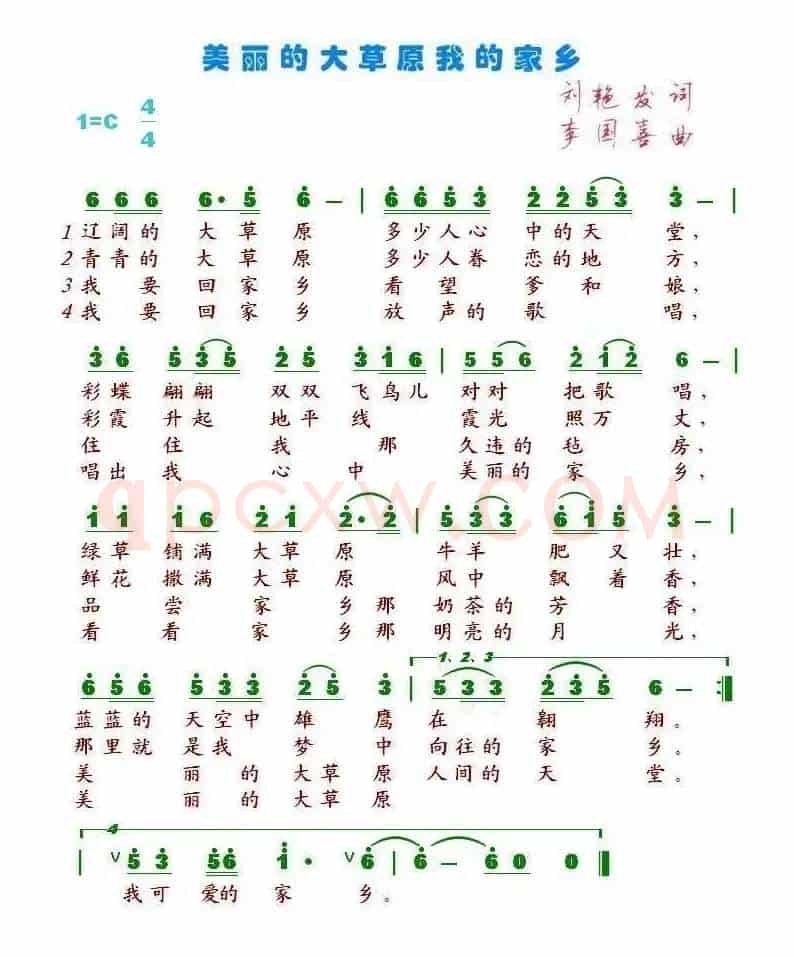 美丽的大草原我的家乡
刘艳发词
1=C 4/4
李国喜曲
6 6 6 6· 5 6 — | 6 6 5 3 2 2 5 3 3 — |
1辽阔的大草原多少人心中的天堂，
2青青的大草原多少人眷恋的地方，
3我要回家乡看望爹和娘，
4我要回家乡放声的歌唱，
3 6 5 3 5 2 5 3 1 6 | 5 5 6 2 1 2 6 — |
彩蝶翩翩双双飞鸟儿对对把歌唱，
彩霞升起地平线霞光照万丈，
住住我那久违的毡房，
唱出我心中美丽的家乡，
qpcxw.COM
1 1 1 6 2 1 2· 2 | 5 3 3 6 1 5 3 — |
绿草铺满大草原牛羊肥又壮，
鲜花撒满大草原风中飘着香，
品尝家乡那奶茶的芳香，
看看家乡那明亮的月光，
1、2、3
6 5 6 5 3 3 2 5 3 | 5 3 3 2 3 5 6 — :||
蓝蓝的天空中雄鹰在翱翔。
那里就是我梦中向往的家乡。
美丽的大草原人间的天堂。
美丽的大草原
4
| V 5 3 5 6 1· V 6 | 6 — 6 0 0 ||
我可爱的家乡。